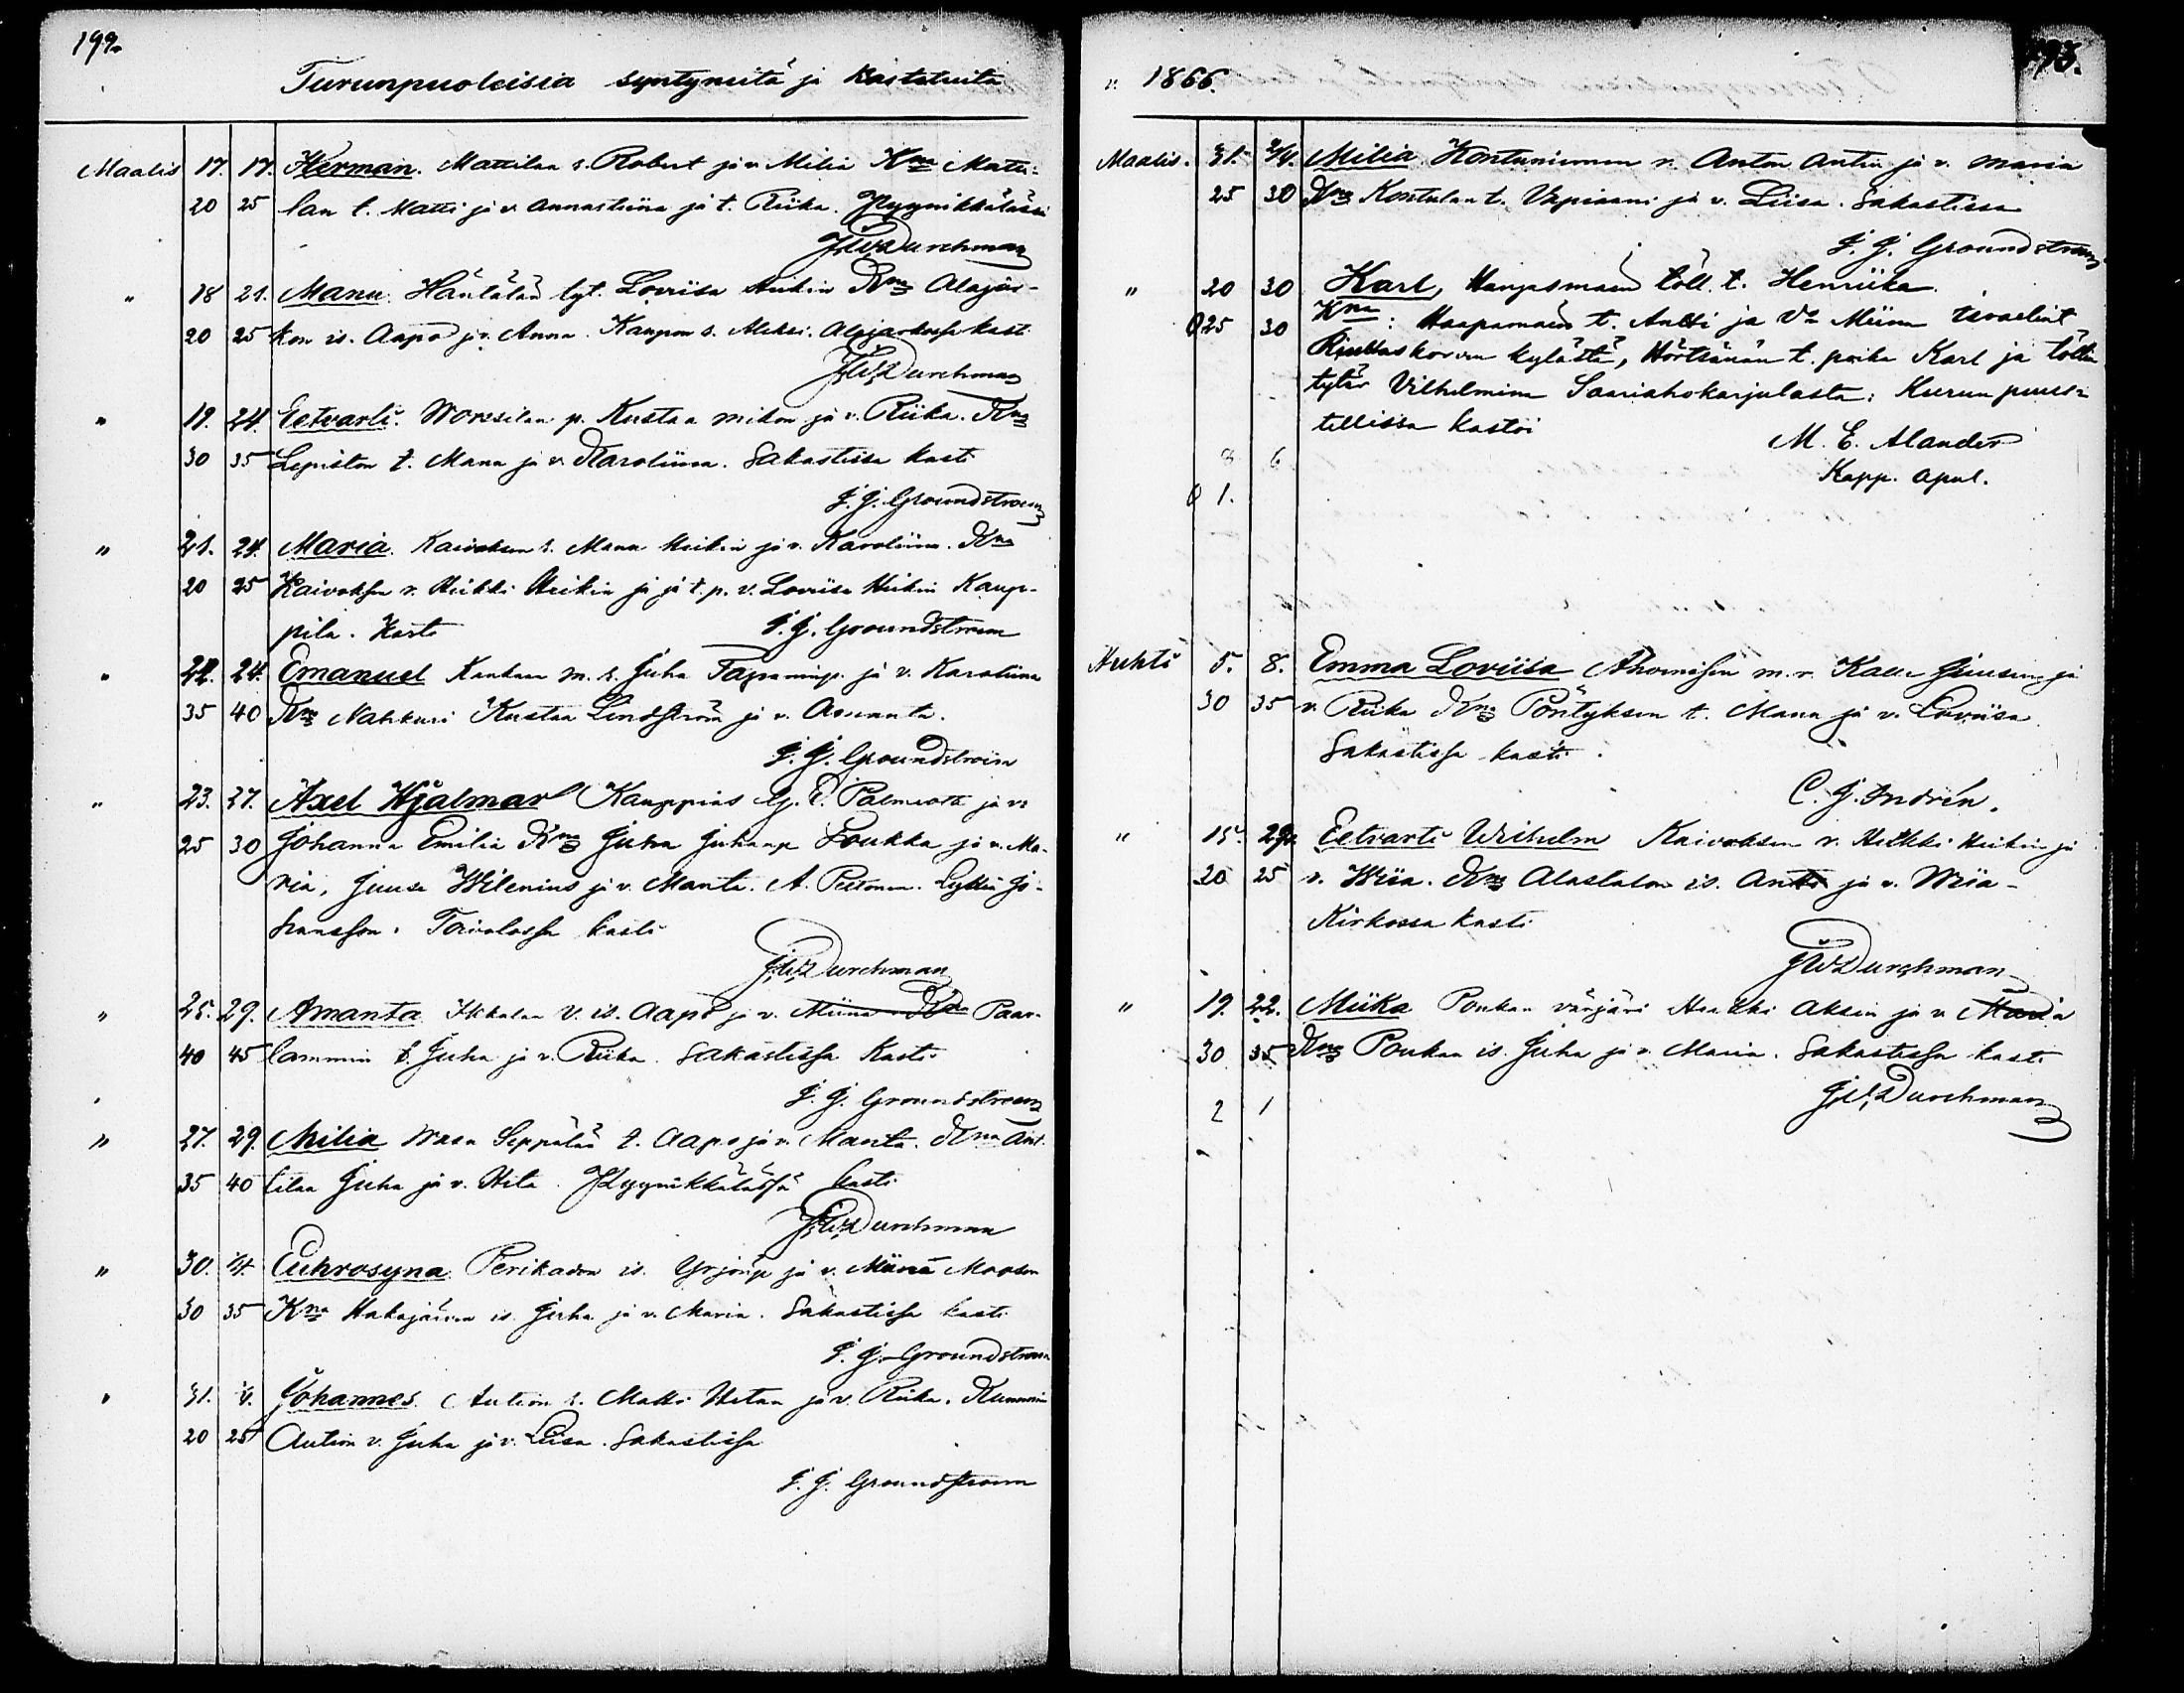 192.
Turunpuoleisia syntyneitä ja kastetuita
Maalis 17. 17. Herman. Mattilan r. Robert ja v. Milia Kna Matti-
20 25 lan t. Matti ja v. Annastiina ja t. Riika. Hyynikkälässä
J.W. Durchman
" 18 21. Manu. Häntälän tyt. Loviisa Heikin Kna Alajär-
20 25 ken is. Aapo ja v. Anna. Kaupon r. Aleksi. Alajärkessä kast.
J.W. Durchman
" 19. 24. Eetvarti. p. Kustaa Mikon ja v. Riika. Kna
30 35 Lepistön t. Manu ja v. Karoliina. Sakastissa kasti
J. J. Groundstroem
" 21. 24. Maria. Kaivoksen r. Manu Heikin ja v. Karoliina. Kna
20 25 Kaivoksen v. Heikki Heikin ja t. p. v. Loviisa Heikin Kaup-
pila. Kasti J. J. Groundstroem
" 22. 24. Emanuel Kankaan m. r. Juha Tapaninp. ja v. Karoliina
35 40 Kna Nahkuri Kustaa Lindström ja v. Amanta.
J. J. Groundstroem
" 23. 27. Axel Hjalmar Kauppias G. E. Palmroth ja v.
25 30 Johanna Emilia Kna Juha Juhanp Loukka ja v. Ma-
ria, Juuse Wilenius ja v. Manta. A. Peltonen. Jo-
hansson. Toivolassa kasti
J.W. Durchman
" 25. 29. Amanta V. is. Aapo ja v. Miina Kna Paar-
40 45 lammin t. Juha ja v. Riika. Sakastissa kasti
J. J. Groundstroem
" 27. 29. Milia Seppälän t. Aapo ja v. Manta. Kna Ant-
35 40 tilan Juha ja v. Hita. Hyynikkälässä kasti
J.W. Durchman
" 30. 1/4. Euhrosyna Perikadon is. Yrjönp ja v. Miina
30 35 Kna Hakajärven is. Juha ja v. Maria. Sakastissa kasti
J. J. Groundstroem
" 31. 1/4. Johannes. Aution r. Matti ja v. Riika. Kummin
20 25 Aution v. Juha ja v. Liisa. Sakastissa
J. J. Groundstroem
v. 1866.
193.
Maalis. 31. 2/4. Milia. Kontuniemen v. Anton Antin ja v. Maria
25 30 Kna Kontulan t. Vapiaani ja v. Liisa. Sakastissa
J. J. Groundstroem
" 20 30 Karl, Hangasmaan töll. t. Henriika.
025 30 Kna: Haapamäen t. Antti ja Vo Miina Israelint
kylästä, t. poika Karl ja töllin
tytär Vilhelmina Saariahokarjulasta: Kurun
tellissa kastoi
M. E. Alander
Kapp. Apul.
8 6
0 1.
Huhti 5. 8. Emma Loviisa m. v. Kalle Juusenp ja
30 35 v. Riika Kna Pöntyksen t. Manu ja v. Loviisa
Sakastissa kasti.
C. G. Indrén.
" 15. 22. Eetvarti Wilhelm Kaivoksen v. Heikki Heikin ja
20 25 v. Wiia. Kna Alastalon is. Antti ja v. Miia-
Kirkossa kasti
J.W. Durchman
" 19. 22. Miika Poukan värjäri Heikki Aksin ja v. Maria
30 35 Kna Poukan is. Juha ja v. Maria. Sakastissa kasti
2 1 J.W. Durchman